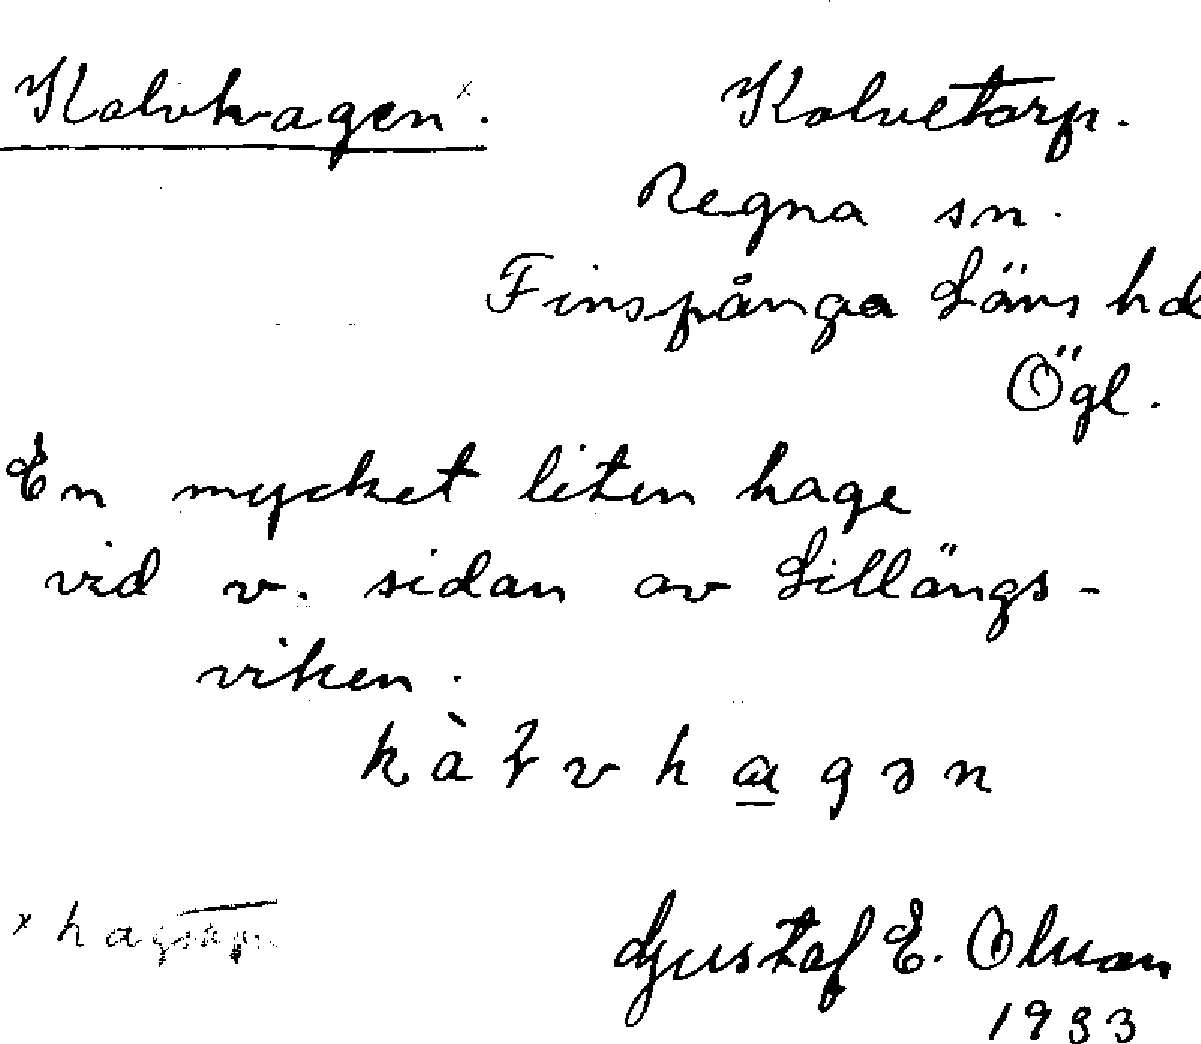 Kalvhagen x.
Kalvetorp.
Regna sn.
Finspånga Läns hd
Ögl.
En mycket liten hage
vid v. sidan av Lillängs-
viken.
kàłvhagən
x hag
Gustaf E. Olsson
1933